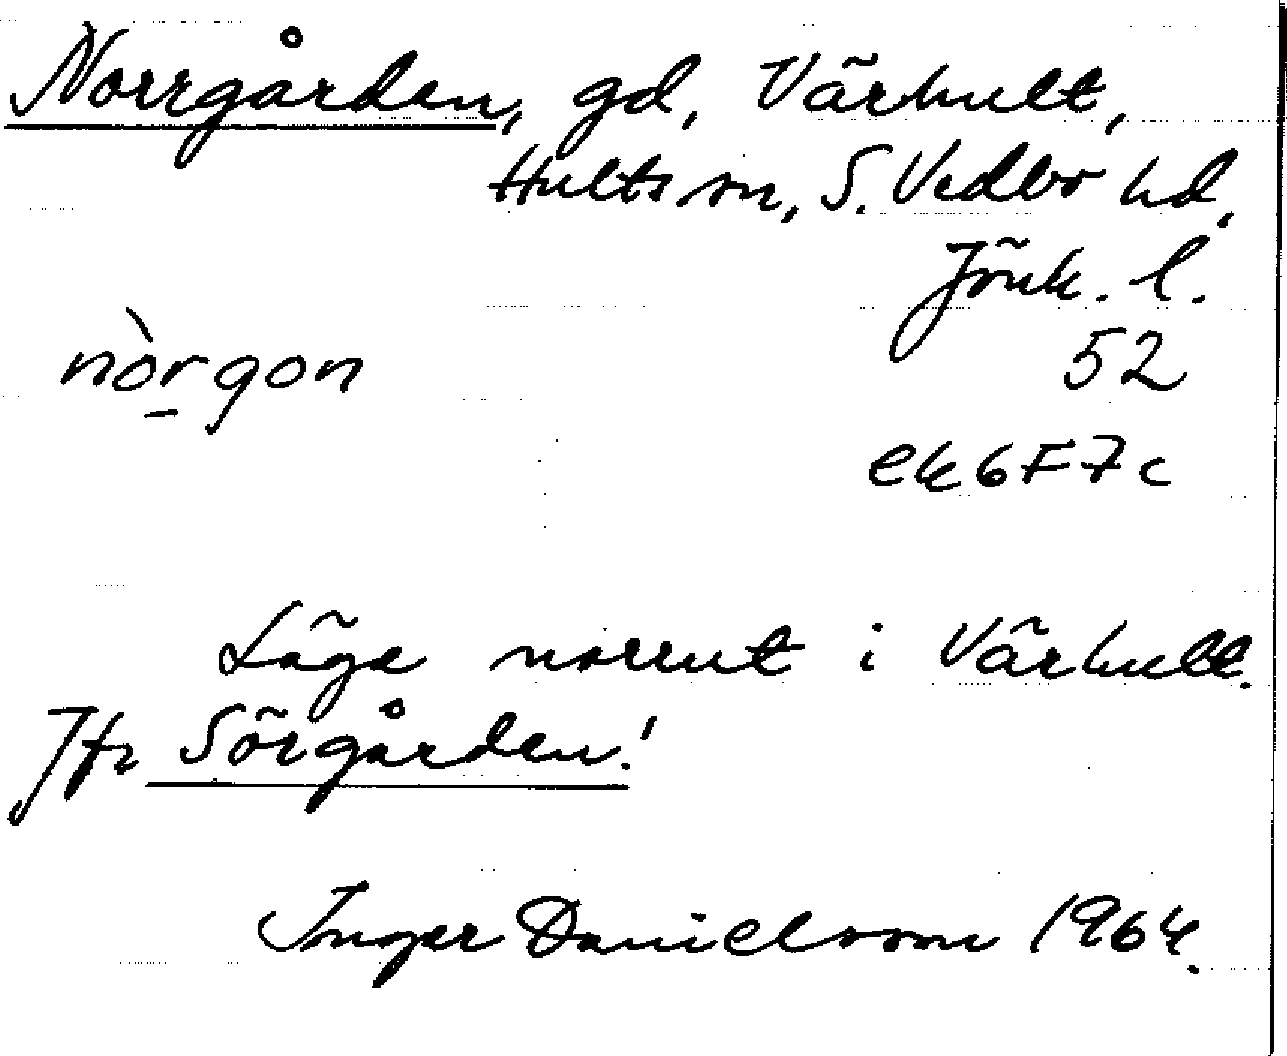 Norrgården, gd, Värhult,
Hults sn, S. Vedbo hd,
Jönk. l.
nòrgon
52
ek 6F7c
Läge norrut i Värhult.
Jfr Sörgården!
Inger Danielsson 1964.